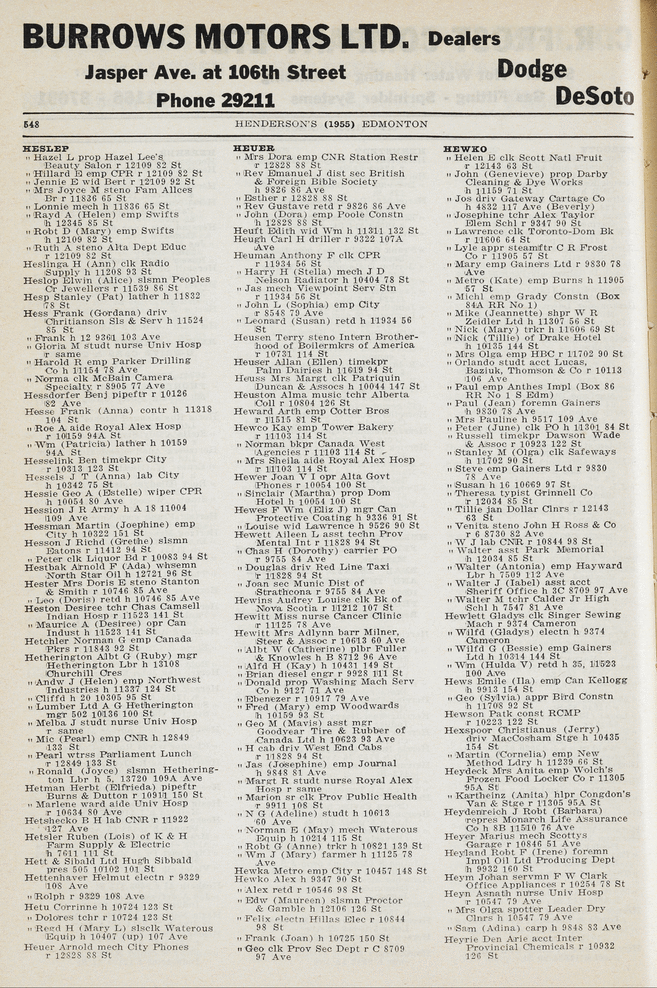 BURROWS MOTORS LTD. Dealers
Jasper Ave. at 106th Street Dodge
Phone 29211 DeSoto
548 HENDERSON'S (1955) EDMONTON
HESLEP
" Hazel L prop Hazel Lee's
Beauty Salon r 12109 82 St
" Hillard E emp CPR r 12109 82 St
" Jennie E wid Bert r 12109 92 St
" Mrs Joyce M steno Fam Allces
Br r 11836 65 St
" Lonnie mech h 11836 65 St
" Rayd A (Helen) emp Swifts
h 12345 85 St
" Robt D (Mary) emp Swifts
h 12109 82 St
" Ruth A steno Alta Dept Educ
r 12109 82 St
Heslinga H (Ann) clk Radio
Supply h 11208 93 St
Heslop Elwin (Alice) slsmn Peoples
Cr Jewellers r 11539 86 St
Hesp Stanley (Pat) lather h 11832
78 St
Hess Frank (Gordana) driv
Christianson Sls & Serv h 11524
85 St
" Frank h 12 9361 103 Ave
" Gloria M studt nurse Univ Hosp
r same
" Harold R emp Parker Drilling
Co h 11154 78 Ave
" Norma clk McBain Camera
Specialty r 8905 77 Ave
Hessdorfer Benj pipeftr r 10126
82 Ave
Hesse Frank (Anna) contr h 11318
104 St
" Roe A aide Royal Alex Hosp
r 10159 94A St
" Wm (Patricia) lather h 10159
94A St
Hesselink Ben timekpr City
r 10313 123 St
Hessels J T (Anna) lab City
h 10342 75 St
Hessie Geo A (Estelle) wiper CPR
h 10054 80 Ave
Hession J R Army h A 18 11004
109 Ave
Hessman Martin (Joephine) emp
City h 10322 151 St
Hesson J Richd (Grethe) slsmn
Eatons r 11412 94 St
" Peter clk Liquor Bd r 10083 94 St
Hestbak Arnold F (Ada) whsemn
North Star Oil h 12721 96 St
Hester Mrs Doris E steno Stanton
& Smith r 10746 85 Ave
" Leo (Doris) retd h 10746 85 Ave
Heston Desiree tchr Chas Camsell
Indian Hosp r 11523 141 St
" Maurice A (Desiree) opr Can
Indust h 11523 141 St
Hetchler Norman G emp Canada
Pkrs r 11843 92 St
Hetherington Albt G (Ruby) mgr
Hetherington Lbr h 13108
Churchill Cres
" Andw J (Helen) emp Northwest
Industries h 11337 124 St
" Cliffd h 20 10305 95 St
" Lumber Ltd A G Hetherington
mgr 502 10136 100 St
" Melba J studt nurse Univ Hosp
r same
" Mic (Pearl) emp CNR h 12849
133 St
" Pearl wtrss Parliament Lunch
r 12849 133 St
" Ronald (Joyce) slsmn Hethering-
ton Lbr h 5, 13720 109A Ave
Hetman Herbt (Elfrieda) pipeftr
Burns & Dutton r 10911 150 St
" Marlene ward aide Univ Hosp
r 10634 80 Ave
Hetshecko B H lab CNR r 11922
127 Ave
Hetsler Ruben (Lois) of K & H
Farm Supply & Electric
h 7611 111 St
Hett & Sibald Ltd Hugh Sibbald
pres 505 10102 101 St
Hettenhaver Helmut electn r 9329
108 Ave
" Rolph r 9329 108 Ave
Hetu Corrinne h 10724 123 St
" Dolores tchr r 10724 123 St
" Regd H (Mary L) slsclk Waterous
Equip h 10407 (up) 107 Ave
Heuer Arnold mech City Phones
r 12828 88 St
HEUER
" Mrs Dora emp CNR Station Restr
r 12828 88 St
" Rev Emanuel J dist sec British
& Foreign Bible Society
h 9826 86 Ave
" Esther r 12828 88 St
" Rev Gustave retd r 9826 86 Ave
" John (Dora) emp Poole Constn
h 12828 88 St
Heuft Edith wid Wm h 11311 132 St
Heugh Carl H driller r 9322 107A
Ave
Heuman Anthony F clk CPR
r 11934 56 St
" Harry H (Stella) mech J D
Nelson Radiator h 10404 78 St
" Jas mech Viewpoint Serv Stn
r 11934 56 St
" John L (Sophia) emp City
r 8548 79 Ave
" Leonard (Susan) retd h 11934 56
St
Heusen Terry steno Intern Brother-
hood of Boilermkrs of America
r 10731 114 St
Heuser Allan (Ellen) timekpr
Palm Dairies h 11619 94 St
Heuss Mrs Margt clk Patriquin
Duncan & Assocs h 10044 147 St
Heuston Alma music tchr Alberta
Coll r 10804 126 St
Heward Arth emp Cotter Bros
r 11515 81 St
Hewco Kay emp Tower Bakery
r 11103 114 St
" Norman bkpr Canada West
Agencies r 11103 114 St
" Mrs Sheila aide Royal Alex Hosp
r 11103 114 St
Hewer Joan V I opr Alta Govt
Phones r 10054 100 St
" Sinclair (Martha) prop Dom
Hotel h 10054 100 St
Hewes F Wm (Eliz J) mgr Can
Protective Coating h 9336 91 St
" Louise wid Lawrence h 9526 90 St
Hewett Aileen L asst techn Prov
Mental Int r 11828 94 St
" Chas H (Dorothy) carrier PO
r 9755 84 Ave
" Douglas driv Red Line Taxi
r 11828 94 St
" Joan sec Music Dist of
Strathcona r 9755 84 Ave
Hewins Audrey Louise clk Bk of
Nova Scotia r 11212 107 St
Hewitt Miss nurse Cancer Clinic
r 11125 78 Ave
Hewitt Mrs Adlynn barr Milner,
Steer & Assoc r 10613 60 Ave
" Albt W (Catherine) plbr Fuller
& Knowles h B 8712 96 Ave
" Alfd H (Kay) h 10431 149 St
" Brian diesel engr r 9928 111 St
" Donald prop Washing Mach Serv
Co h 9127 71 Ave
" Ebenezer r 10917 79 Ave
" Fred (Mary) emp Woodwards
h 10159 93 St
" Geo M (Mavis) asst mgr
Goodyear Tire & Rubber of
Canada Ltd h 10623 93 Ave
" H cab driv West End Cabs
r 11828 94 St
" Jas (Josephine) emp Journal
h 9848 81 Ave
" Margt R studt nurse Royal Alex
Hosp r same
" Marion sr clk Prov Public Health
r 9911 108 St
" N G (Adeline) studt h 10613
60 Ave
" Norman E (May) mech Waterous
Equip h 10214 115 St
" Robt G (Anne) trkr h 10821 139 St
" Wm J (Mary) farmer h 11125 78
Ave
Hewka Metro emp City r 10457 148 St
Hewko Alex h 9347 90 St
" Alex retd r 10546 98 St
" Edw (Maureen) slsmn Proctor
& Gamble h 12106 126 St
" Felix electn Hillas Elec r 10844
98 St
" Frank (Joan) h 10725 150 St
" Geo clk Prov Sec Dept r C 8709
97 Ave
HEWKO
" Helen E clk Scott Natl Fruit
r 12143 63 St
" John (Genevieve) prop Darby
Cleaning & Dye Works
h 11159 71 St
" Jos driv Gateway Cartage Co
h 4832 117 Ave (Beverly)
" Josephine tchr Alex Taylor
Elem Schl r 9347 90 St
" Lawrence clk Toronto-Dom Bk
r 11606 64 St
" Lyle appr steamftr C R Frost
Co r 11905 57 St
" Mary emp Gainers Ltd r 9830 78
Ave
" Metro (Kate) emp Burns h 11905
57 St
" Michl emp Grady Constn (Box
84A RR No 1)
" Mike (Jeannette) shpr W R
Zeidler Ltd h 11307 56 St
" Nick (Mary) trkr h 11606 69 St
" Nick (Tillie) of Drake Hotel
h 10135 144 St
" Mrs Olga emp HBC r 11702 90 St
" Orlando studt acct Lucas,
Baziuk, Thomson & Co r 10113
106 Ave
" Paul emp Anthes Impl (Box 86
RR No 1 S Edm)
" Paul (Jean) foremn Gainers
h 9830 78 Ave
" Mrs Pauline h 9517 109 Ave
" Peter (June) clk PO h 11301 84 St
" Russell timekpr Dawson Wade
& Assoc r 10923 122 St
" Stanley M (Olga) clk Safeways
h 11702 90 St
" Steve emp Gainers Ltd r 9830
78 Ave
" Susan h 16 10669 97 St
" Theresa typist Grinnell Co
r 12034 85 St
" Tillie jan Dollar Clnrs r 12143
63 St
" Venita steno John H Ross & Co
r 6 8730 82 Ave
" W J lab CNR r 10844 98 St
" Walter asst Park Memorial
h 12034 85 St
" Walter (Antonia) emp Hayward
Lbr h 7509 112 Ave
" Walter J (Isabel) asst acct
Sheriff Office h 3C 8709 97 Ave
" Walter M tchr Calder Jr High
Schl h 7547 81 Ave
Hewlett Gladys clk Singer Sewing
Mach r 9374 Cameron
" Wilfd (Gladys) electn h 9374
Cameron
" Wilfd G (Bessie) emp Gainers
Ltd h 10314 144 St
" Wm (Hulda V) retd h 35, 11523
100 Ave
Hews Emile (Ila) emp Can Kellogg
h 9913 154 St
" Geo (Sylvia) appr Bird Constn
h 11708 92 St
Hewson Patk const RCMP
r 10223 122 St
Hexspoor Christianus (Jerry)
driv MacCosham Stge h 10435
154 St
" Martin (Cornelia) emp New
Method Ldry h 11239 66 St
Heydeck Mrs Anita emp Wolch's
Frozen Food Locker Co r 11305
95A St
" Kartheinz (Anita) hlpr Congdon's
Van & Stge r 11305 95A St
Heydenreich J Robt (Barbara)
repres Monarch Life Assurance
Co h 8B 11510 76 Ave
Heyer Marius mech Scotty's
Garage r 10846 51 Ave
Heyland Robt F (Irene) foremn
Impl Oil Ltd Producing Dept
h 9932 160 St
Heym Johan servmn F W Clark
Office Appliances r 10254 78 St
Heyn Asnath nurse Univ Hosp
r 10547 79 Ave
" Mrs Olga spotter Leader Dry
Clnrs h 10547 79 Ave
" Sam (Adina) carp h 9848 83 Ave
Heyrie Den Arie acct Inter
Provincial Chemicals r 10932
126 St